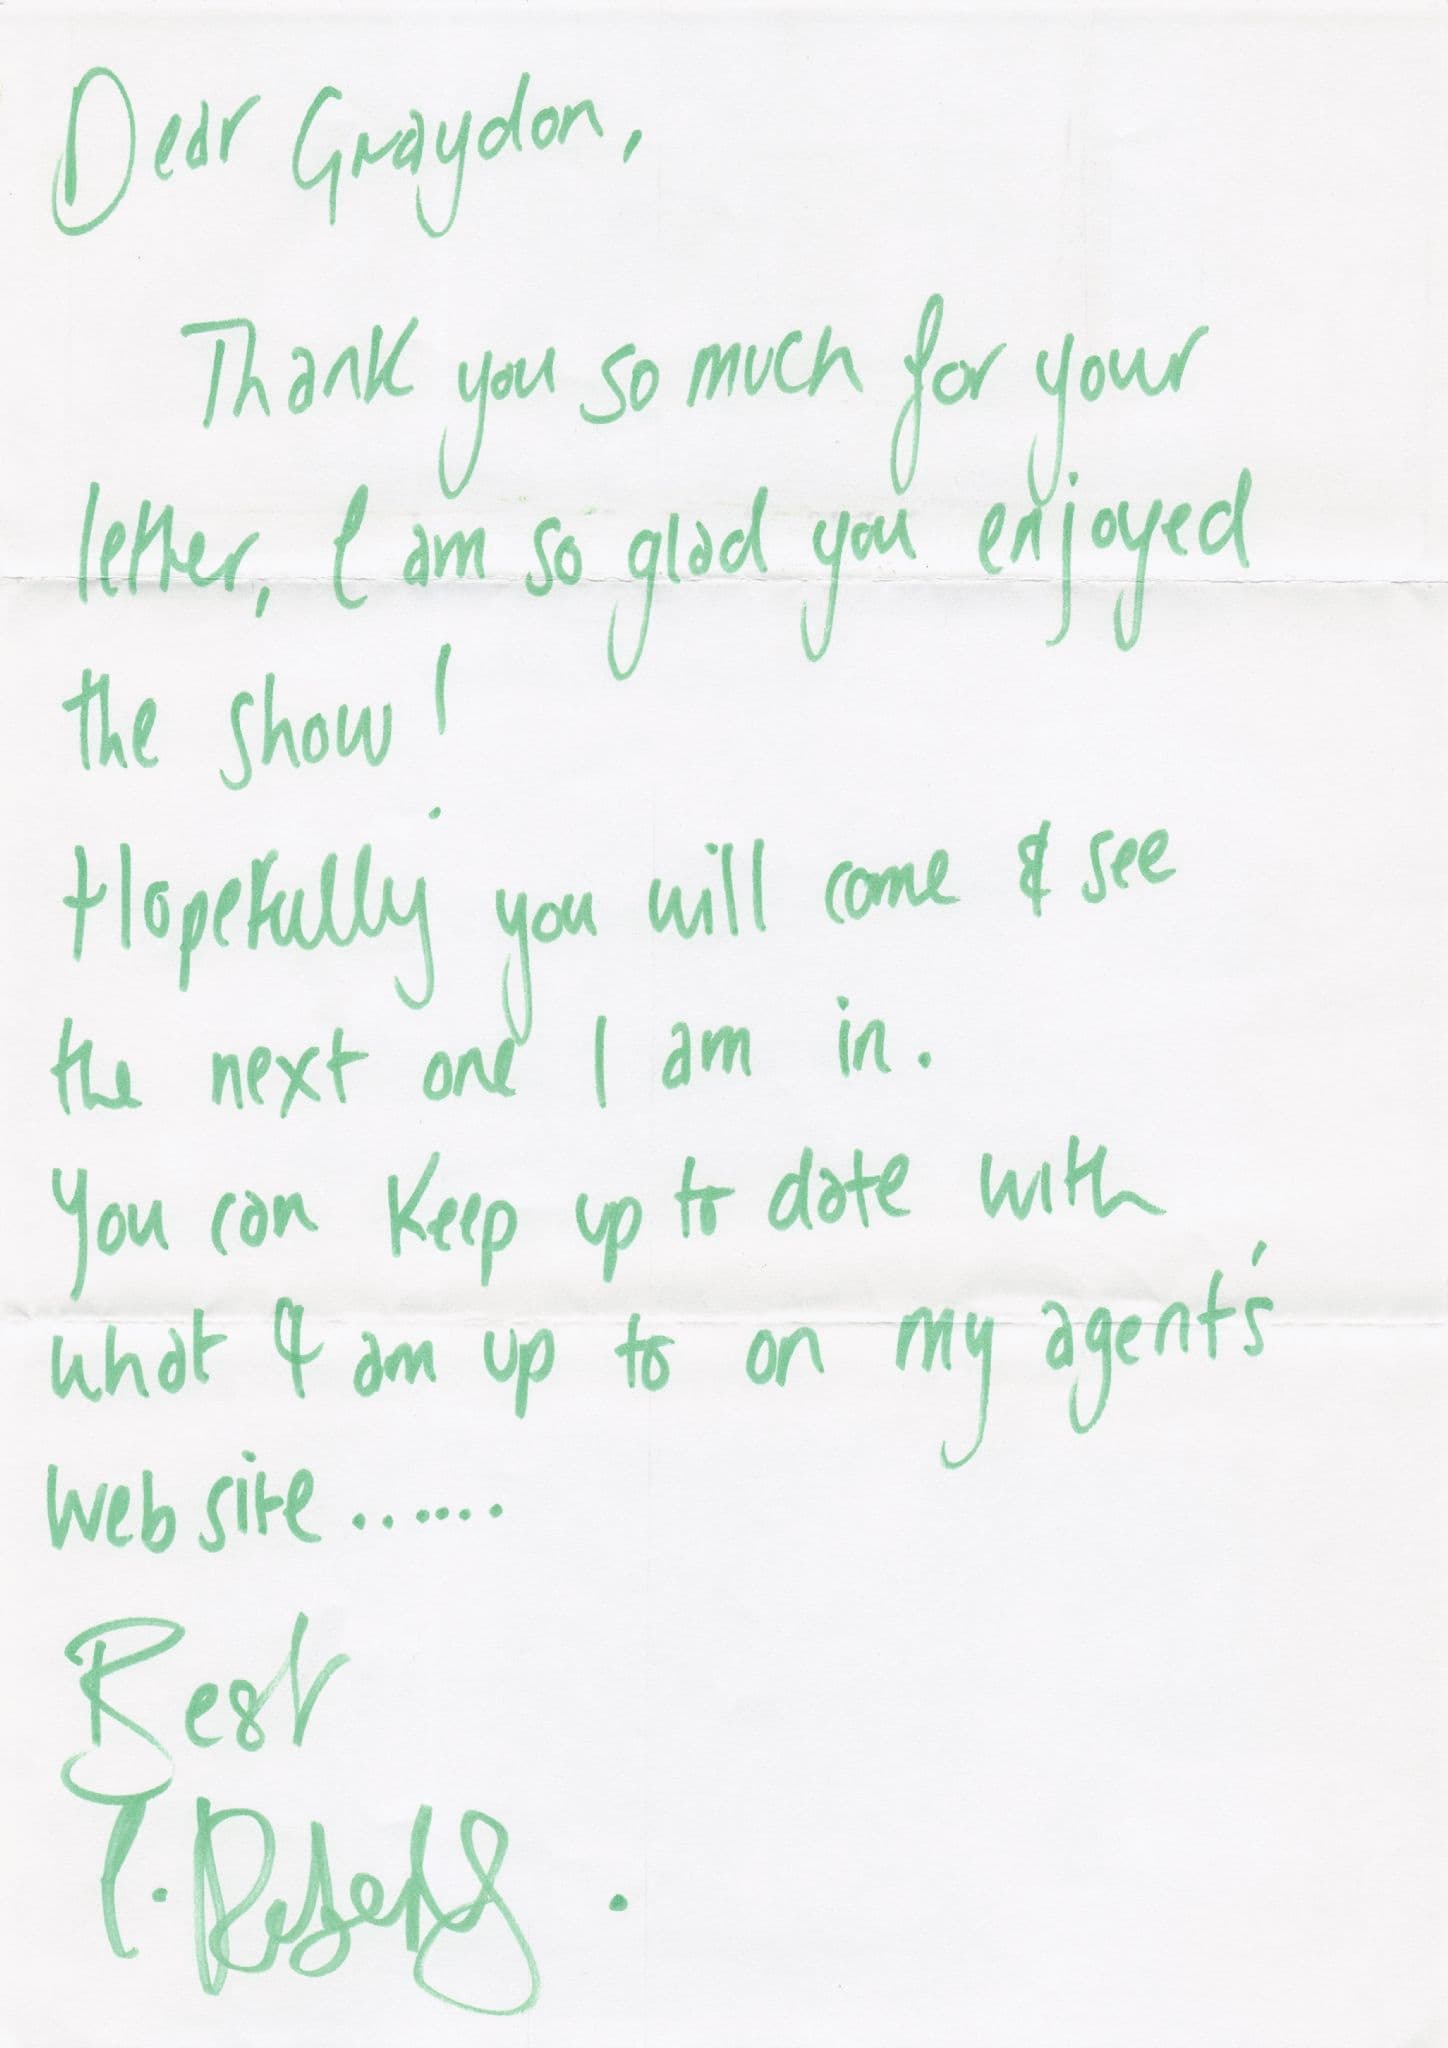 Dear Graydon,
Thank you so much for your
letter, I am so glad you enjoyed
the show!
Hopefully you will come & see
the next one I am in.
You can keep up to date with
what I am up to on my agent's
website.......
Best